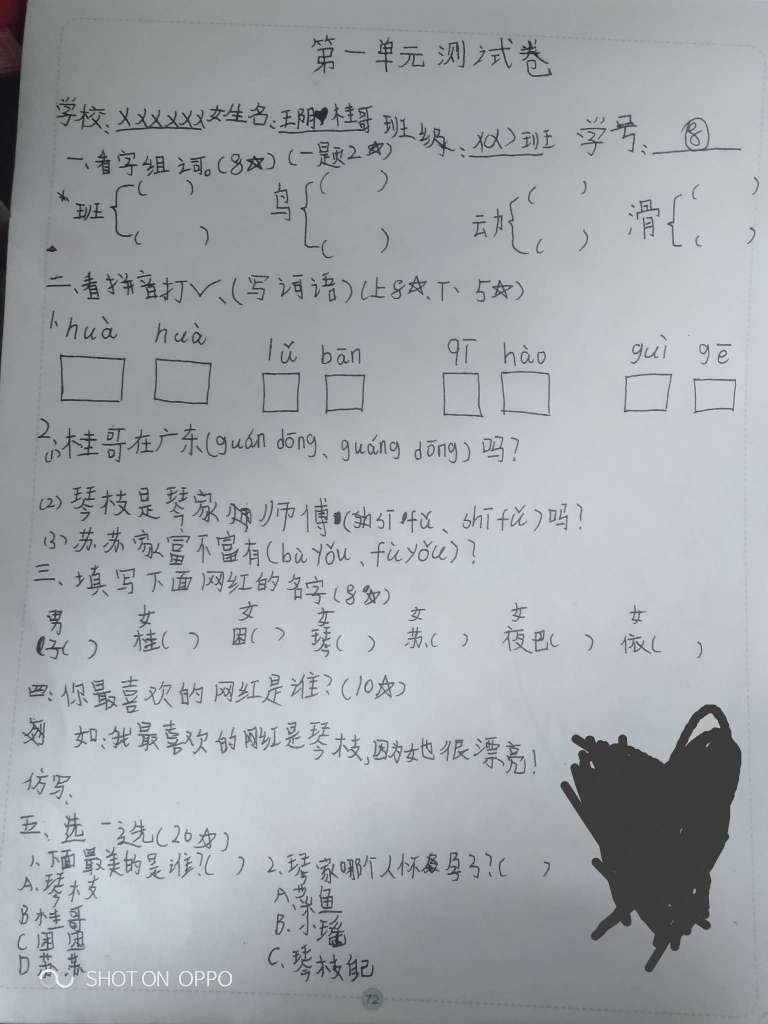 第一单元测试卷
学校:XXXXXX 姓名: 桂哥 班级: 班 学号: ⑧
一、看字组词。(8☆)(一题2☆)
班{( ) ( ) 鸟{( ) ( ) 动{( ) ( ) 滑{( ) ( )
二、看拼音打✓、(写词语)(上8☆、下、5☆)
1、huà huà lǔ bān qī hào guì gē
2、(1)桂哥在广东(guán dōng、guáng dōng)吗?
(2)琴枝是琴家 师傅(sī fǔ、shī fǔ)吗?
(3)苏苏家富不富有(bù yǒu、fù yǒu)?
三、填写下面网红的名字(8☆)
男 女 女 女 女 女 女
仔( ) 桂( ) 困( ) 琴( ) 苏( ) 夜巴( ) 依( )
四:你最喜欢的网红是谁?(10☆)
例 如:我最喜欢的网红是琴枝,因为她很漂亮!
仿写:
五、选一选(20☆)
1、下面最美的是谁?( ) 2.琴家哪个人怀孕了?( )
A.琴枝 A.菜鱼
B桂哥 B.小瑶
C困困 C.琴枝自己
D苏苏
SHOT ON OPPO
72